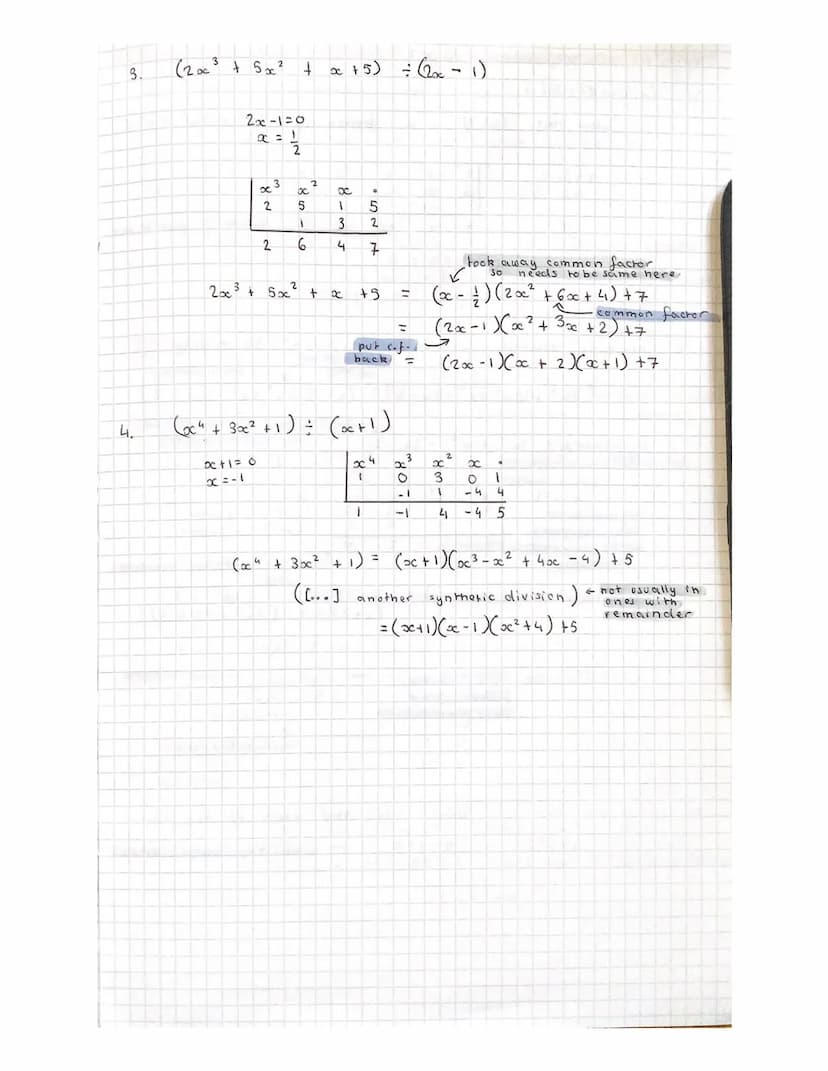 3. (2x³ + 5x² + x + 5) ÷ (2x - 1)
2x - 1 = 0
x = 1/2
x³ x² x •
2 5 1 5
1 3 2
2 6 4 7
took away common factor
so needs to be same here
2x³ + 5x² + x + 5 = (x - 1/2)(2x² + 6x + 4) + 7
common factor
= (2x - 1)(x² + 3x + 2) + 7
put c.f.
back
= (2x - 1)(x + 2)(x + 1) + 7
4. (x⁴ + 3x² + 1) ÷ (x + 1)
x + 1 = 0
x = -1
x⁴ x³ x² x •
1 0 3 0 1
-1 1 -4 4
1 -1 4 -4 5
(x⁴ + 3x² + 1) = (x + 1)(x³ - x² + 4x - 4) + 5
([...] another synthetic division) ← not usually in
ones with
remainder
= (x+1)(x - 1)(x² + 4) + 5